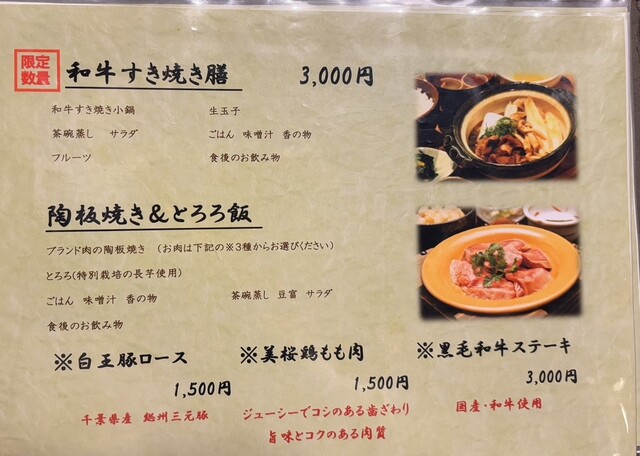 限定
数量
和牛すき焼き膳 3,000円
和牛すき焼き小鍋 生玉子
茶碗蒸し サラダ ごはん 味噌汁 香の物
フルーツ 食後のお飲み物
陶板焼き&とろろ飯
ブランド肉の陶板焼き (お肉は下記の※3種からお選びください)
とろろ(特別栽培の長芋使用)
ごはん 味噌汁 香の物 茶碗蒸し 豆富 サラダ
食後のお飲み物
※白王豚ロース ※美桜鶏もも肉 ※黒毛和牛ステーキ
1,500円 1,500円 3,000円
千葉県産 総州三元豚 ジューシーでコシのある歯ざわり 国産・和牛使用
旨味とコクのある肉質